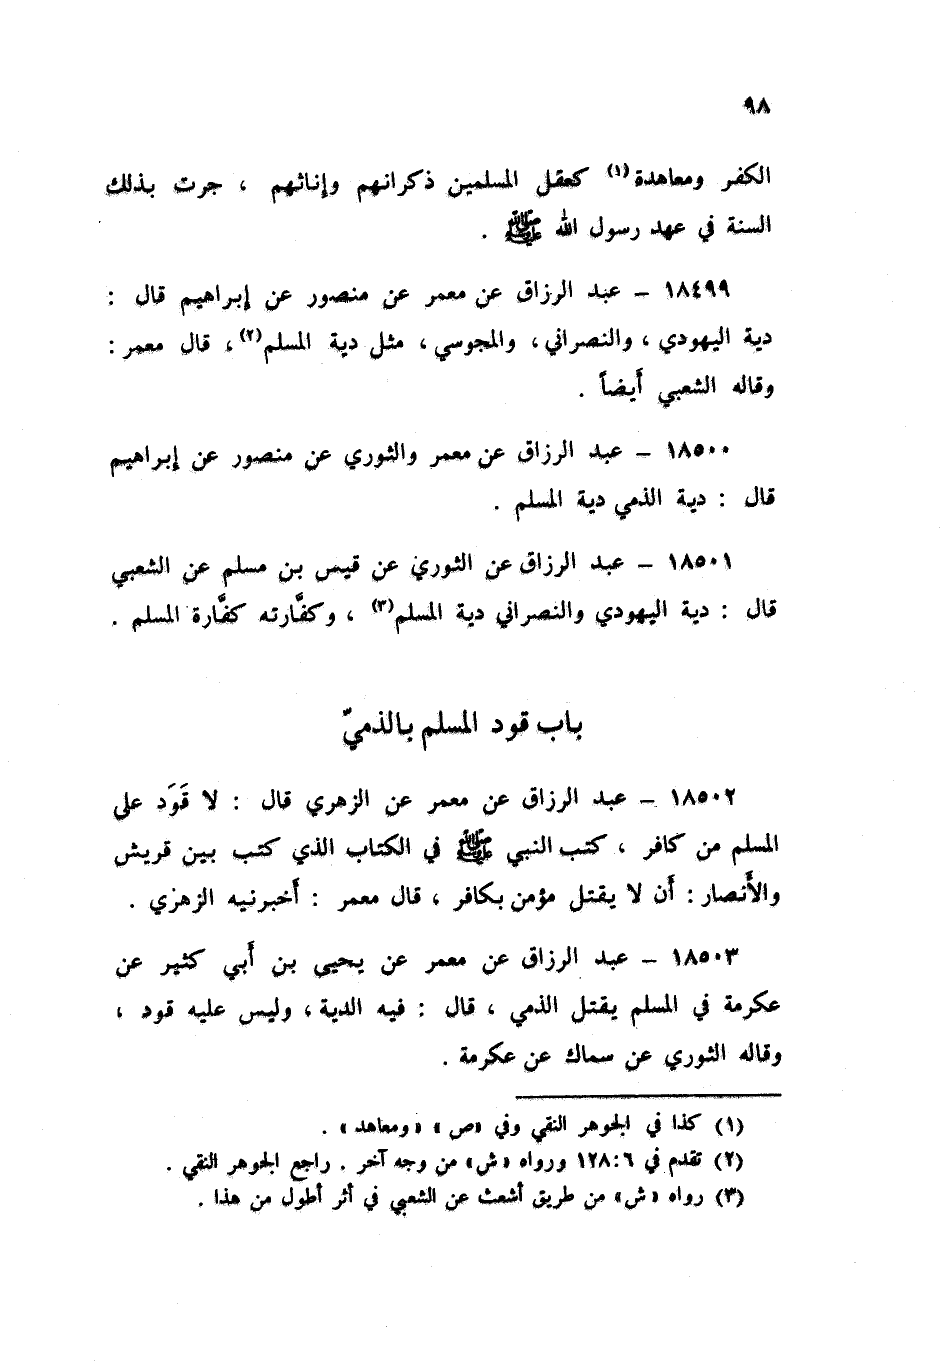 ٩٨
الكفر ومعاهدة(١) كعقل المسلمين ذكرانهم وإناثهم ، جرت بذلك
السنة في عهد رسول الله ﷺ .
١٨٤٩٩ ــ عبد الرزاق عن معمر عن منصور عن إبراهيم قال :
دية اليهودي ، والنصراني ، والمجوسي ، مثل دية المسلم(٢) ، قال معمر :
وقاله الشعبي أيضاً .
١٨٥٠٠ ــ عبد الرزاق عن معمر والثوري عن منصور عن إبراهيم
قال : دية الذمي دية المسلم .
١٨٥٠١ ــ عبد الرزاق عن الثوري عن قيس بن مسلم عن الشعبي
قال : دية اليهودي والنصراني دية المسلم(٣) ، وكفَّارته كفَّارة المسلم .
باب قود المسلم بالذميّ
١٨٥٠٢ ــ عبد الرزاق عن معمر عن الزهري قال : لا قَوَد على
المسلم من كافر ، كتب النبي ﷺ في الكتاب الذي كتب بين قريش
والأنصار : أن لا يقتل مؤمن بكافر ، قال معمر : أخبرنيه الزهزي .
١٨٥٠٣ ــ عبد الرزاق عن معمر عن يحيى بن أبي كثير عن
عكرمة في المسلم يقتل الذمي ، قال : فيه الدية ، وليس عليه قود ،
وقاله الثوري عن سماك عن عكرمة .
(١) كذا في الجوهر النقي وفي «ص» «ومعاهد» .
(٢) تقدم في ٦ : ١٢٨ ورواه «ش» من وجه آخر . راجع الجوهر النقي .
(٣) رواه «ش» من طريق أشعث عن الشعبي في أثر أطول من هذا .